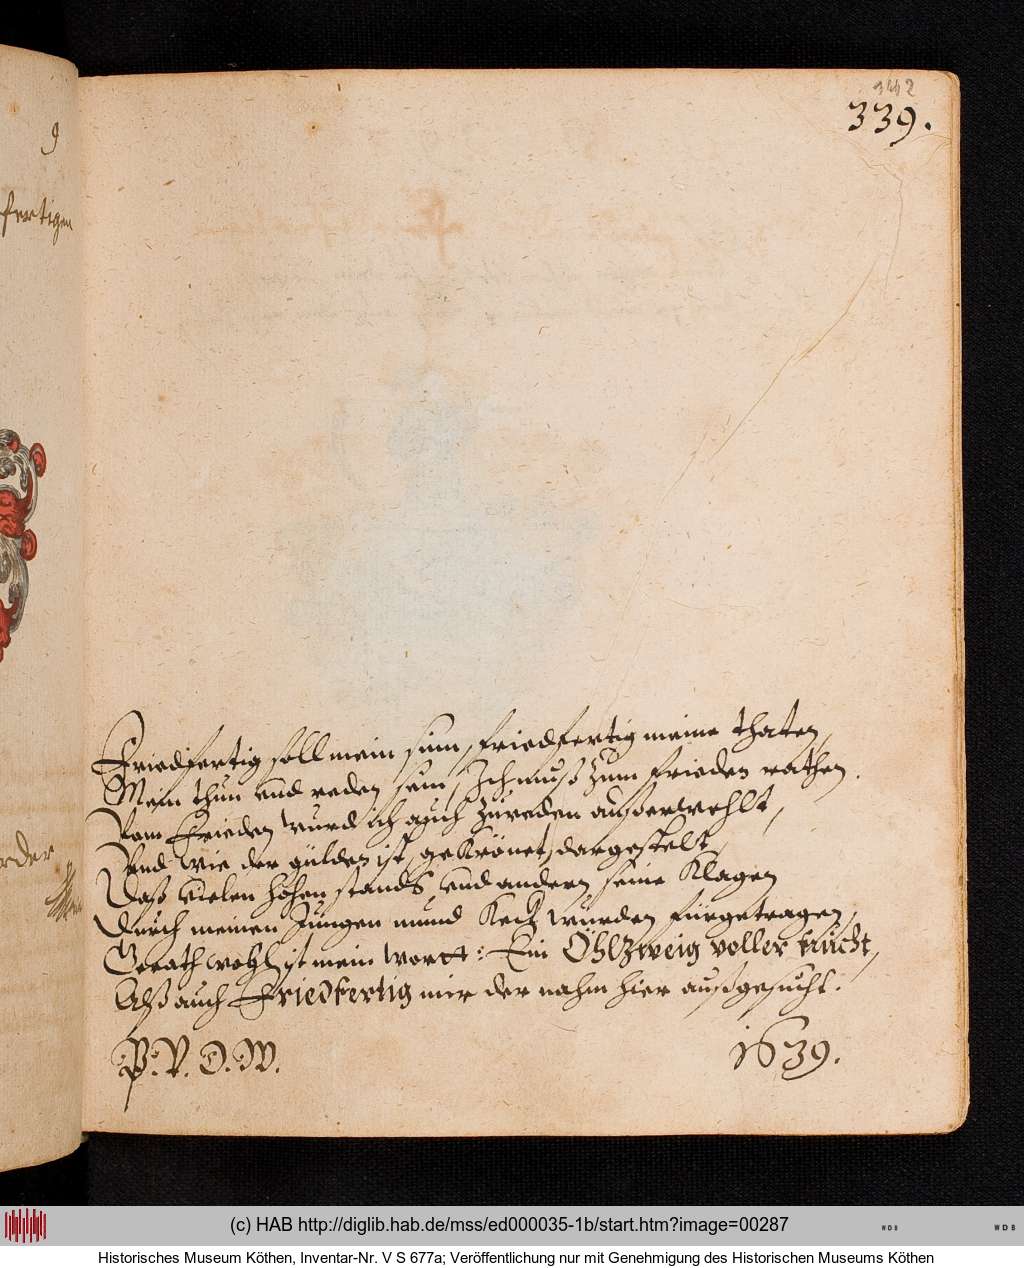 1442
339.
g
fertigen
rder
Friedfertig soll mein sinn, friedfertig meine thaten,
Mein thun vnd reden sein, Ich muß zum frieden rathen.
Vom Frieden wurd ich auch zureden außerwehlt,
Vnd wie der gülden ist, gekrönet, dargestelt,
Daß vielen hohen stands vnd andern seine Klagen
Durch meinen Jungen mund Keck würden fürgetragen,
Gerath wohl ist mein wortt: Ein Öhlzweig voller frucht,
Alß auch Friedfertig mir der nahm hier außgesucht.
P. V. O. W.
1639.
(c) HAB http://diglib.hab.de/mss/ed000035-1b/start.htm?image=00287
WDB
WDB
Historisches Museum Köthen, Inventar-Nr. V S 677a; Veröffentlichung nur mit Genehmigung des Historischen Museums Köthen